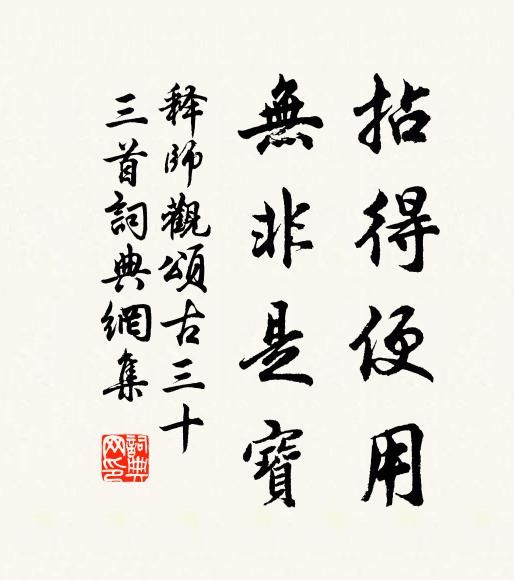 拈得便用
無非是寶
释師觀頌古三十
三首詞典網集
詞典网印